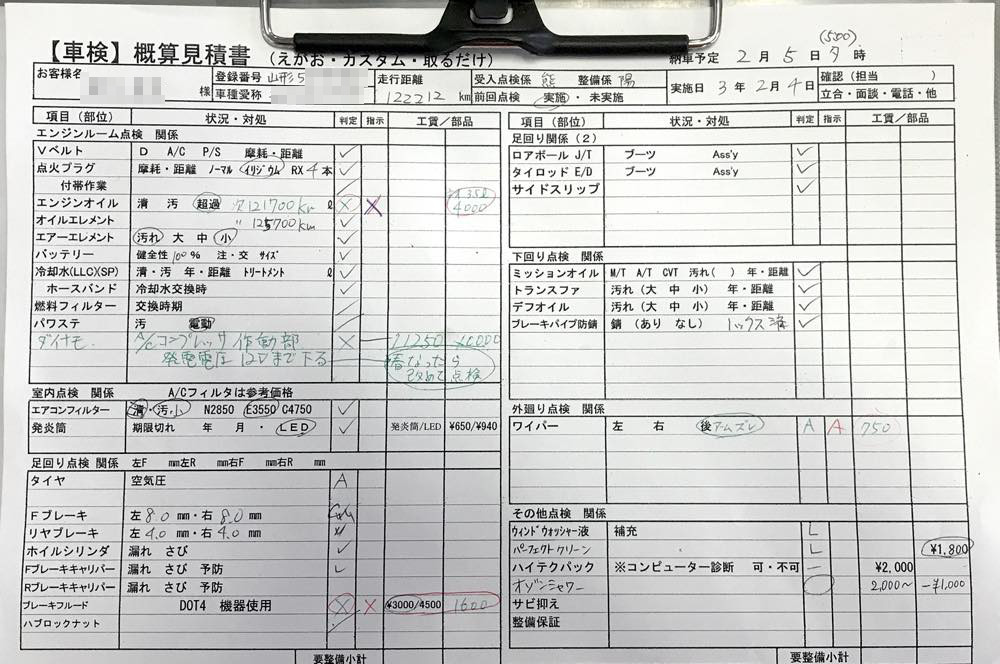 【車検】概算見積書 (えがお・カスタム・取るだけ) 納車予定 2月5日夕時
お客様名 様 登録番号 山形5 走行距離 122212 km 受入点検係 熊 整備係 陽 実施日 3年2月4日 確認(担当 )
車種愛称 前回点検 実施・未実施 立合・面談・電話・他
項目(部位) 状況・対処 判定 指示 工賃/部品
エンジンルーム点検 関係
Vベルト D A/C P/S 摩耗・距離
点火プラグ 摩耗・距離 ノーマル イリジウム RX 4本
付帯作業
エンジンオイル 漬 汚 超過 121700km ℓ X X 4000
オイルエレメント 〃 125700km
エアーエレメント 汚れ 大 中 小
バッテリー 健全性100% 注・交 サイズ
冷却水(LLC)(SP) 漬・汚 年・距離 トリートメント ℓ
ホースバンド 冷却水交換時
燃料フィルター 交換時期
パワステ 汚 電動
ダイナモ A/Cコンプレッサ作動部 X 11250
発電電圧12Dまで下る 春なったら
改めて点検
室内点検 関係 A/Cフィルタは参考価格
エアコンフィルター 漬・汚・小 N2850 E3550 C4750
発炎筒 期限切れ 年 月・LED 発炎筒/LED ¥650/¥940
足回り点検 関係 左F mm左R mm右F mm右R mm
タイヤ 空気圧 A
Fブレーキ 左8.0mm・右8.0mm
リヤブレーキ 左4.0mm・右4.0mm
ホイルシリンダ 漏れ さび
Fブレーキキャリパー 漏れ さび 予防
Rブレーキキャリパー 漏れ さび 予防
ブレーキフルード DOT4 機器使用 X X ¥3000/4500 1600
ハブロックナット
要整備小計
項目(部位) 状況・対処 判定 指示 工賃/部品
足回り関係(2)
ロアボールJ/T ブーツ Ass'y
タイロッドE/D ブーツ Ass'y
サイドスリップ
下回り点検 関係
ミッションオイル M/T A/T CVT 汚れ( ) 年・距離
トランスファ 汚れ(大 中 小) 年・距離
デフオイル 汚れ(大 中 小) 年・距離
ブレーキパイプ防錆 錆 (あり なし) ノックス済
外廻り点検 関係
ワイパー 左 右 後 アームズレ A A 750
その他点検 関係
ウィンドウォッシャー液 補充 L
パーフェクトクリーン L ¥1,800
ハイテクパック ※コンピューター診断 可・不可 ¥2,000
オゾンシャワー 2,000〜 -¥1,000
サビ抑え
整備保証
要整備小計